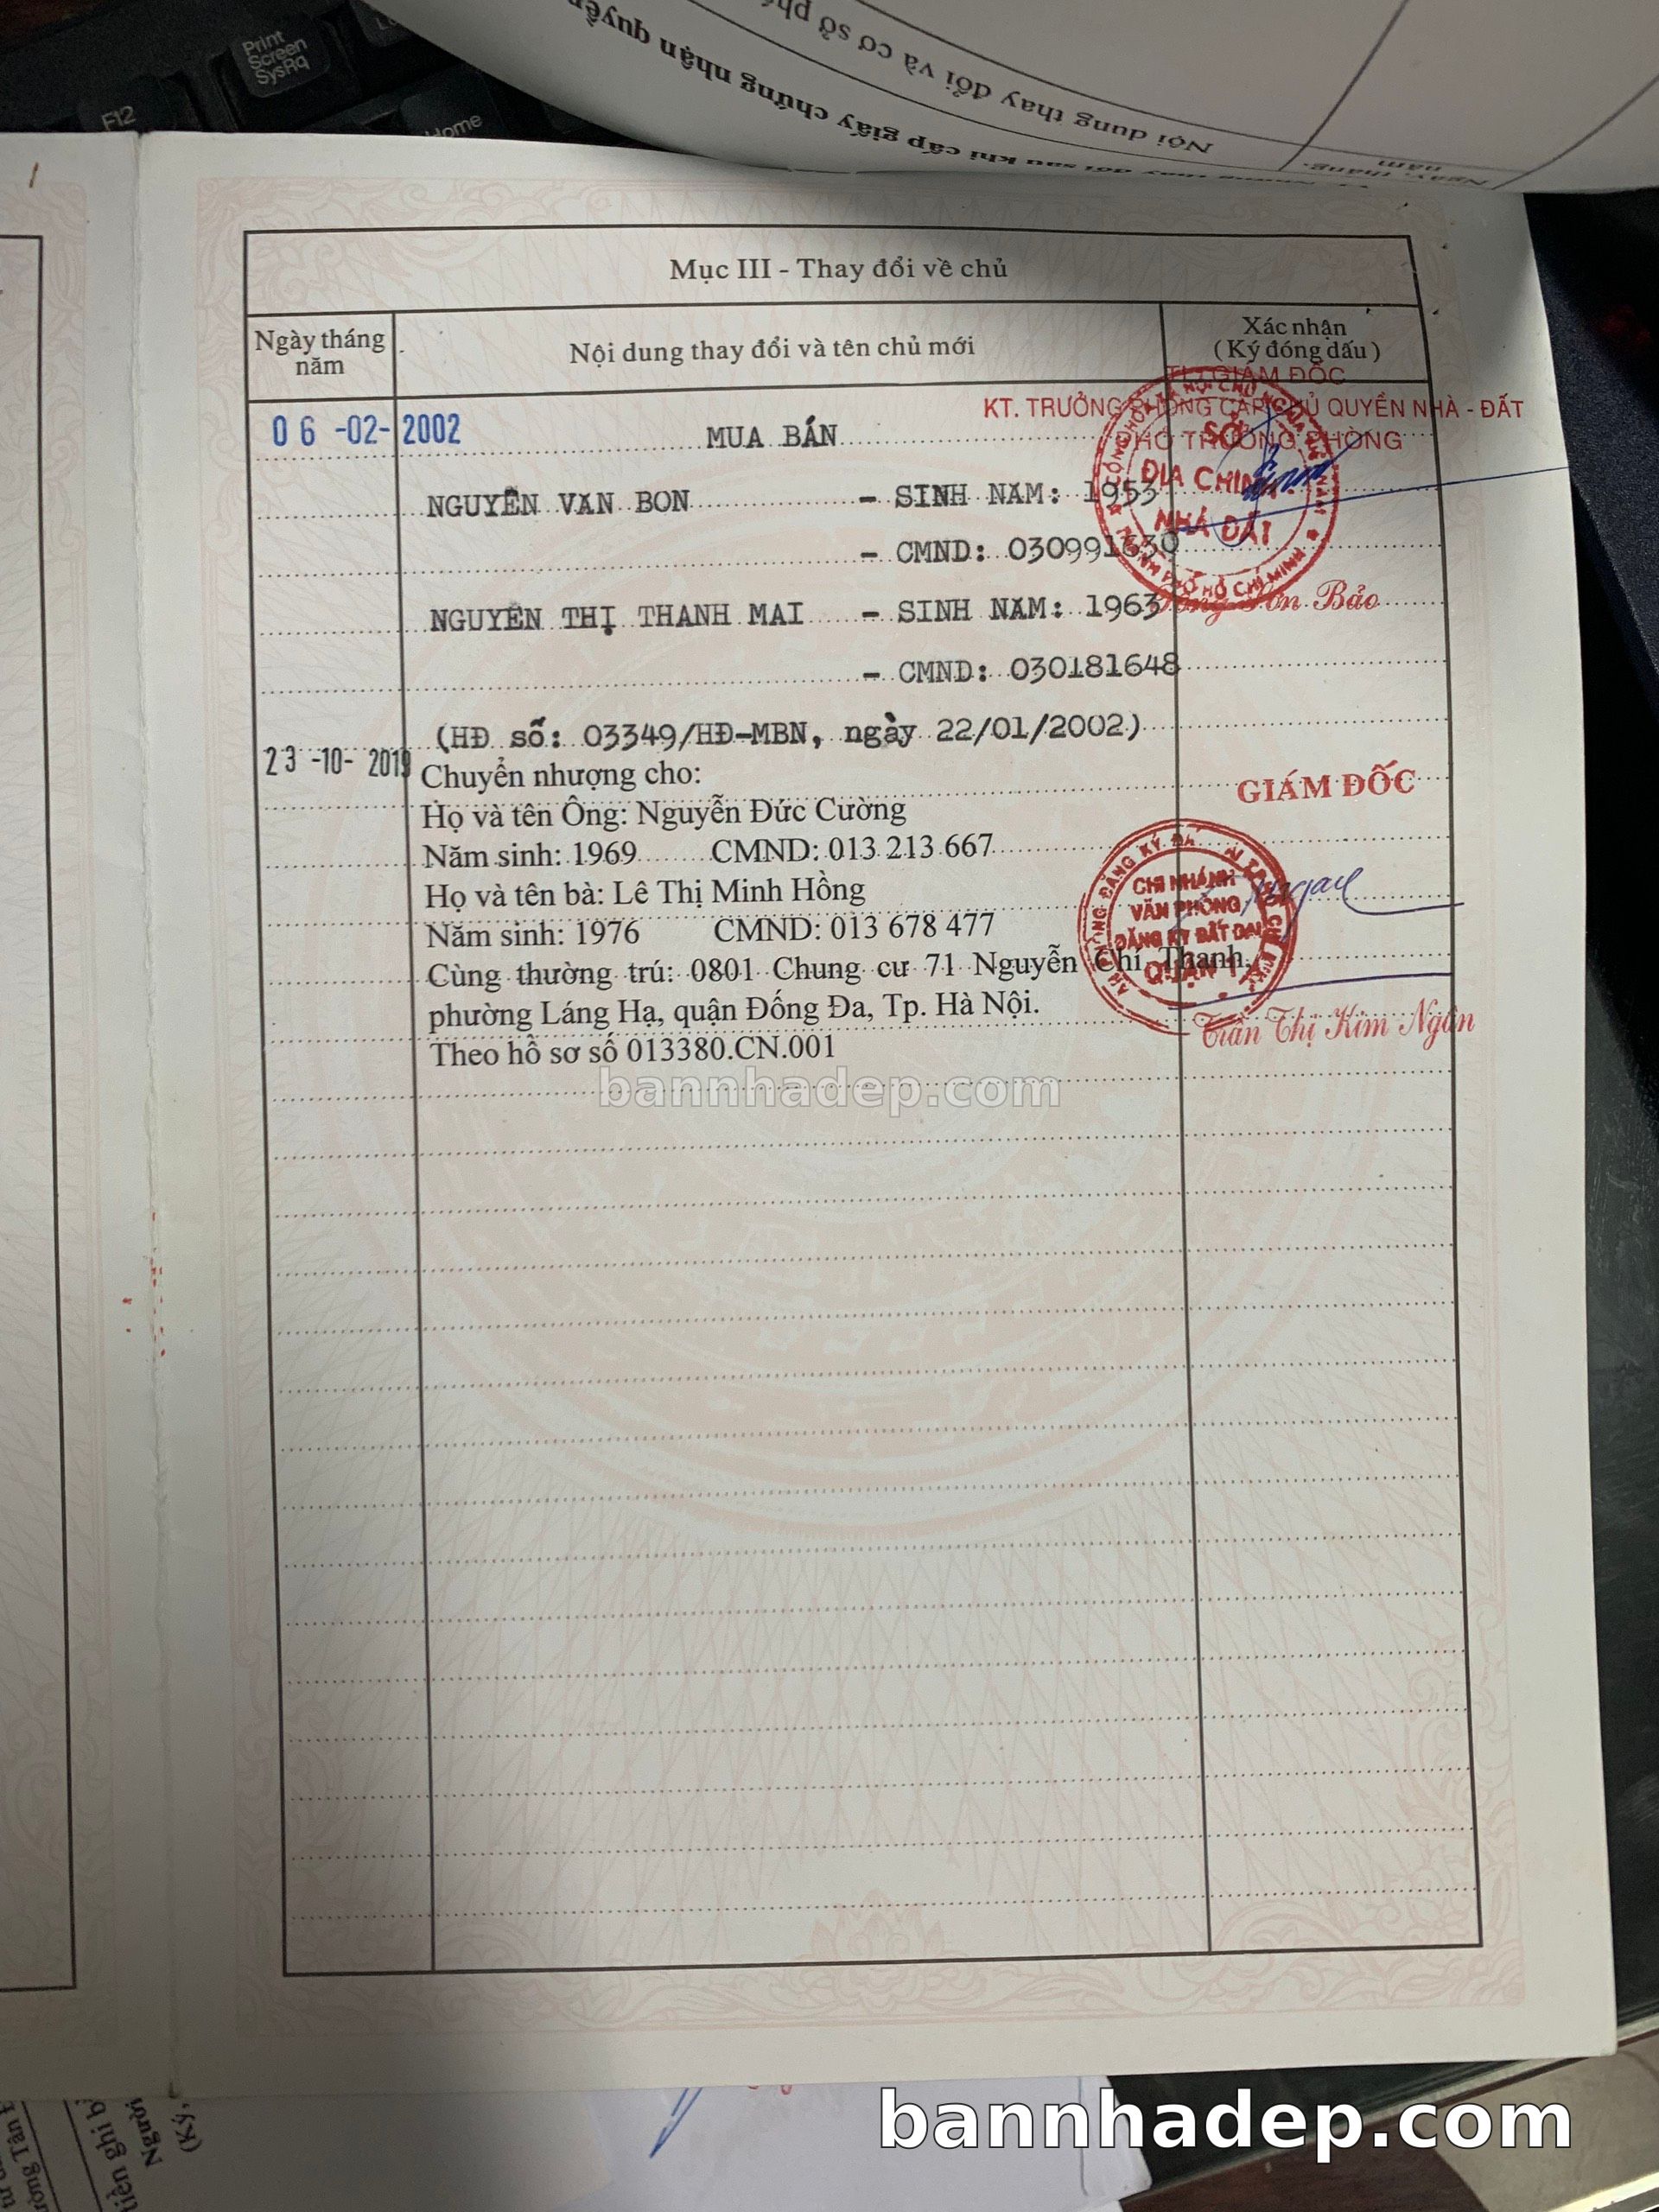 Print
Screen
SysRq
F12
Home
Nội dung thay đổi và cơ sở
đổi sau khi cấp giấy chứng nhận quyền
Ngày, tháng,
năm
Mục III - Thay đổi về chủ
Ngày tháng
năm
Nội dung thay đổi và tên chủ mới
Xác nhận
( Ký đóng dấu )
TL. GIÁM ĐỐC
KT. TRƯỞNG PHÒNG CẤP CHỦ QUYỀN NHÀ - ĐẤT
PHÓ TRƯỞNG PHÒNG
06 -02- 2002
MUA BÁN
SỞ
ĐỊA CHÍNH
NHÀ ĐẤT
THÀNH PHỐ HỒ CHÍ MINH
NGUYỄN VĂN BON - SINH NĂM: 1953
- CMND: 030991630
NGUYỄN THỊ THANH MAI - SINH NĂM: 1963
Sơn Bảo
- CMND: 030181648
(HĐ số: 03349/HĐ-MBN, ngày 22/01/2002)
23 -10- 2019
Chuyển nhượng cho:
GIÁM ĐỐC
Họ và tên Ông: Nguyễn Đức Cường
Năm sinh: 1969 CMND: 013 213 667
Họ và tên bà: Lê Thị Minh Hồng
Năm sinh: 1976 CMND: 013 678 477
CHI NHÁNH
VĂN PHÒNG
ĐĂNG KÝ ĐẤT ĐAI
QUẬN
Cùng thường trú: 0801 Chung cư 71 Nguyễn Chí Thanh,
phường Láng Hạ, quận Đống Đa, Tp. Hà Nội.
Trần Thị Kim Ngân
Theo hồ sơ số 013380.CN.001
bannhadep.com
Người
(Ký,
bannhadep.com